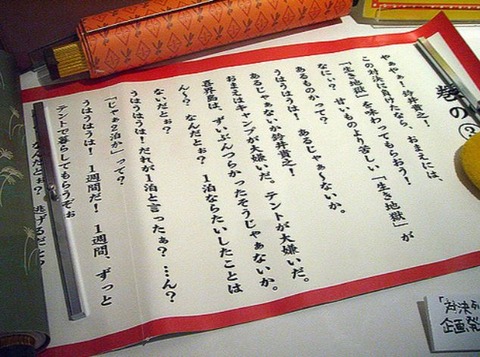 巻の
やぁやぁ!鈴井貴之!
この対決に負けたなら、おまえには、
「生き地獄」を味わってもらおう!
なにぃ? 甘いものより苦しい「生き地獄」が
あるものかって?
うはうはうは! あるじゃぁ〜ないか。
あるじゃぁないか鈴井貴之!
おまえはキャンプが大嫌いだ。テントが大嫌いだ。
喜界島は、ずいぶんつらかったそうじゃぁないか。
ん〜? なんだとぉ? 1泊ならたいしたことは
ないだとぉ?
うはうはうは!だれが1泊と言ったぁ?…ん?
「じゃぁ2泊か」って?
うはうはうは! 1週間だ! 1週間、ずっと
テントで暮らしてもらうぞぉ
なんだとぉ? 逃げるだと?
「対決
企画発